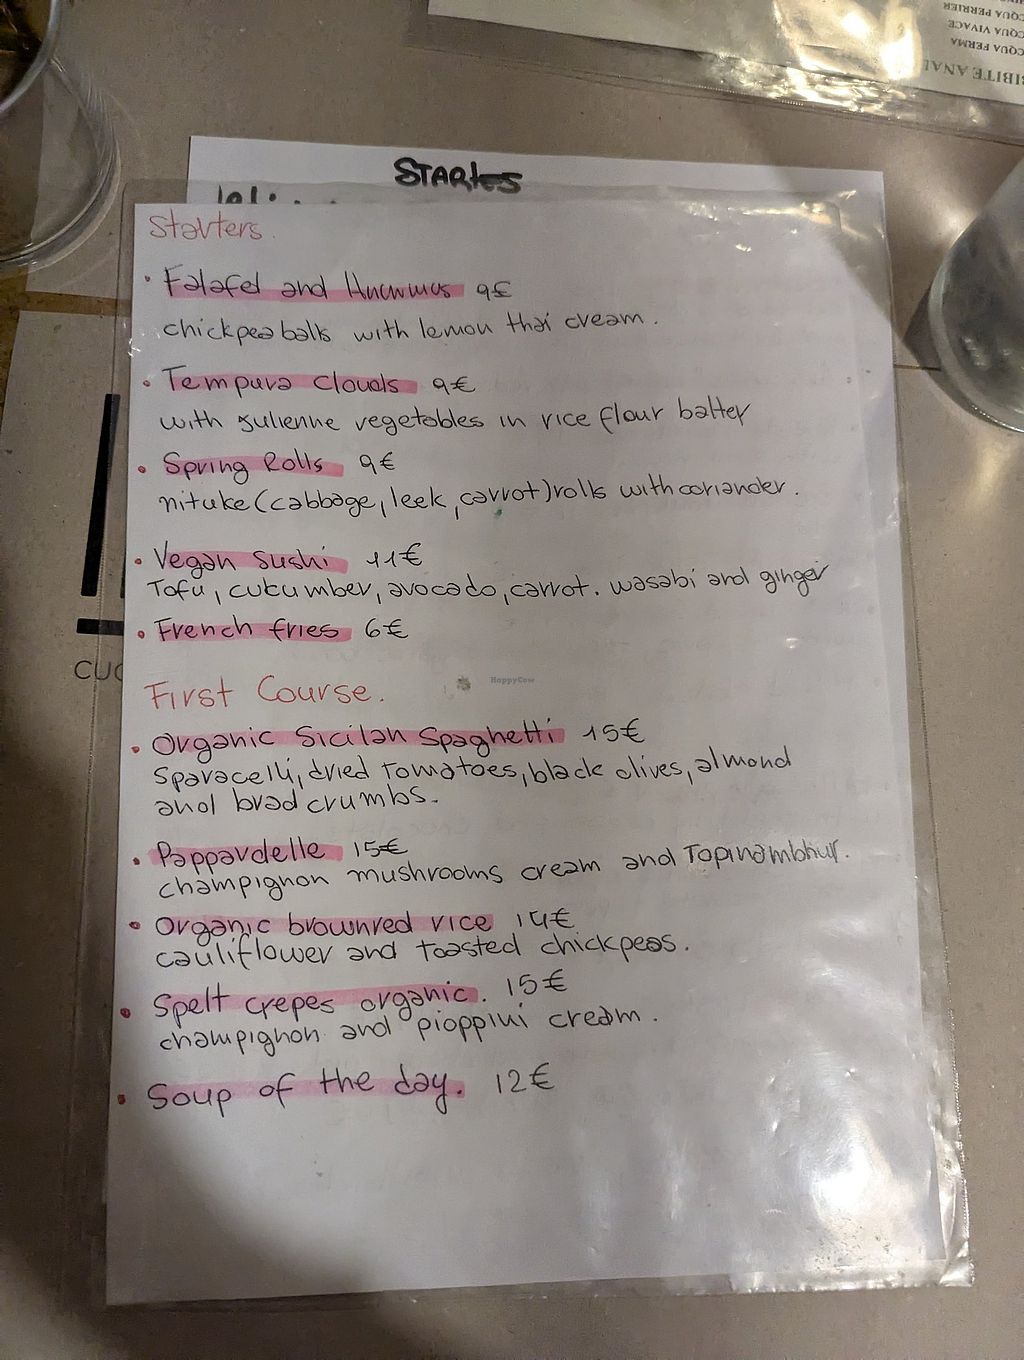 ACQUA PERRIER
ACQUA VIVACE
ACQUA FERMA
STARtES
Starters.
• Falafel and Hummus 9€
chickpea balls with lemon thai cream.
• Tempura Clouds 9€
with julienne vegetables in rice flour batter
• Spring Rolls 9€
nituke (cabbage, leek, carrot) rolls with coriander.
• Vegan Sushi 11€
Tofu, cucumber, avocado, carrot. wasabi and ginger
• French fries 6€
CUC
HappyCow
First Course.
• Organic Sicilan Spaghetti 15€
sparacelli, dried tomatoes, black olives, almond
and brad crumbs.
• Pappardelle 15€
champignon mushrooms cream and Topinambhur.
• Organic brownred rice 14€
cauliflower and toasted chickpeas.
• Spelt crepes organic. 15€
champignon and pioppini cream.
• Soup of the day. 12€